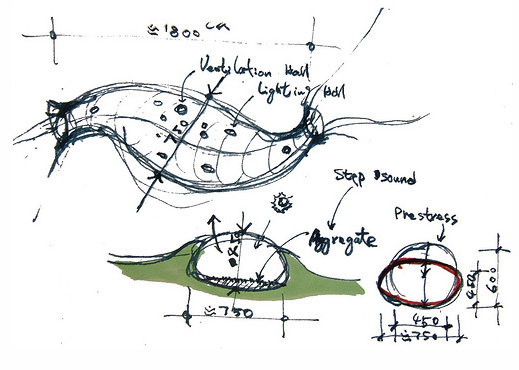 ≒1800 ca
Ventilation Hall
Lighting Hall
≒750
Step sound
Aggregate
Prestress
≒750
450
600
450
≒750